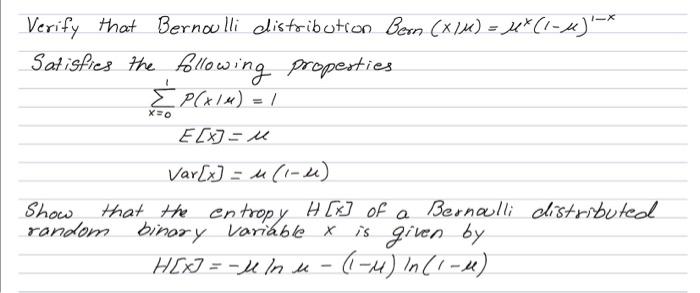 Verify that Bernoulli distribution Bern (x|μ) = μˣ(1-μ)¹⁻ˣ
Satisfies the following properties
1
Σ P(x|μ) = 1
x=0
E[x] = μ
Var[x] = μ(1-μ)
Show that the entropy H[x] of a Bernoulli distributed
random binary variable x is given by
H[x] = -μ ln μ - (1-μ) ln(1-μ)